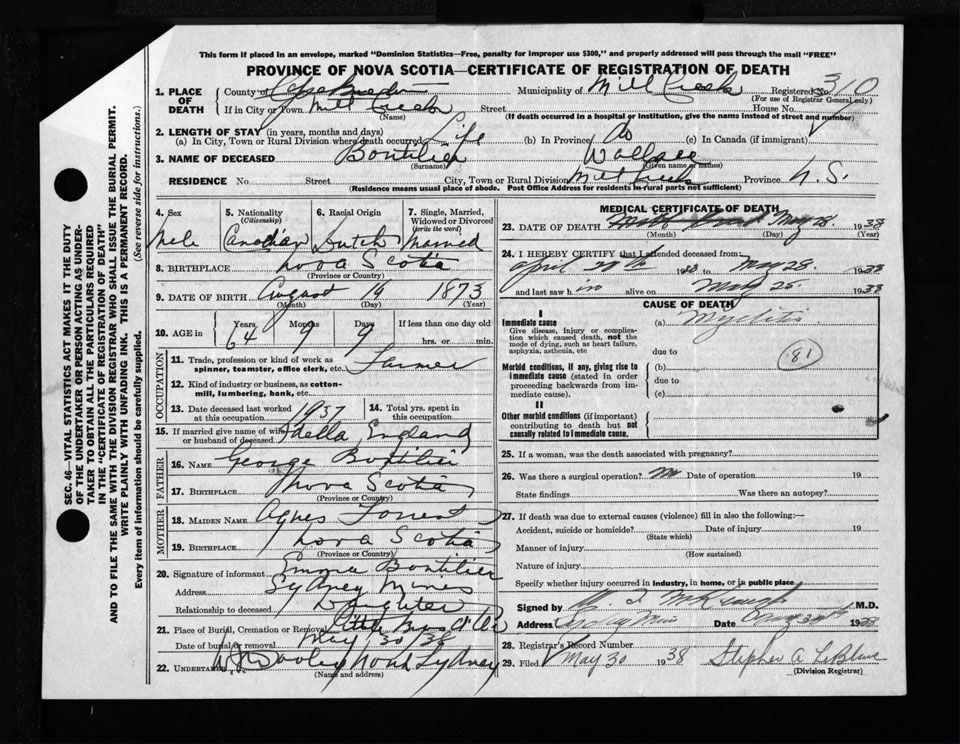 This form if placed in an envelope, marked "Dominion Statistics—Free, penalty for improper use $300," and properly addressed will pass through the mail "FREE"
PROVINCE OF NOVA SCOTIA—CERTIFICATE OF REGISTRATION OF DEATH
1. PLACE OF DEATH County of Cape Breton Municipality of Mill Creek Registered No. 310
(For use of Registrar General only)
If in City or Town Mill Creek Street House No.
(Name) (If death occurred in a hospital or institution, give the name instead of street and number)
2. LENGTH OF STAY (in years, months and days)
(a) In City, Town or Rural Division where death occurred Life (b) In Province do (c) In Canada (if immigrant)
3. NAME OF DECEASED Boutilier Wallace
(Surname) (Given name or names)
RESIDENCE No. Street City, Town or Rural Division Mill Creek Province N.S.
(Residence means usual place of abode. Post Office Address for residents in rural parts not sufficient)
4. Sex 5. Nationality (Citizenship) 6. Racial Origin 7. Single, Married, Widowed or Divorced (write the word)
Male Canadian Dutch Married
8. BIRTHPLACE Nova Scotia
(Province or Country)
9. DATE OF BIRTH August 19 1873
(Month) (Day) (Year)
10. AGE in Years Months Days If less than one day old
64 9 9 hrs. or min.
OCCUPATION
11. Trade, profession or kind of work as spinner, teamster, office clerk, etc. Farmer
12. Kind of industry or business, as cotton-mill, lumbering, bank, etc.
13. Date deceased last worked at this occupation 1937 14. Total yrs. spent in this occupation
15. If married give name of wife or husband of deceased Adella England
FATHER
16. NAME George Boutilier
17. BIRTHPLACE Nova Scotia
(Province or Country)
MOTHER
18. MAIDEN NAME Agnes Forrest
19. BIRTHPLACE Nova Scotia
(Province or Country)
20. Signature of informant Emma Boutilier
Address Sydney Mines
Relationship to deceased Daughter
21. Place of Burial, Cremation or Removal Little Bras d'Or
Date of burial or removal May 30 38
22. UNDERTAKER Dooley North Sydney
(Name and address)
MEDICAL CERTIFICATE OF DEATH
23. DATE OF DEATH May 28 1938
(Month) (Day) (Year)
24. I HEREBY CERTIFY that I attended deceased from:
April 29th 1938 to May 28. 1938
and last saw h im alive on May 25. 1938
CAUSE OF DEATH
I
Immediate cause (a) Myelitis
Give disease, injury or complication which caused death, not the mode of dying, such as heart failure, asphyxia, asthenia, etc
due to
81
Morbid conditions, if any, giving rise to immediate cause (stated in order proceeding backwards from immediate cause).
(b)
due to
(c)
II
Other morbid conditions (if important) contributing to death but not causally related to immediate cause.
25. If a woman, was the death associated with pregnancy?
26. Was there a surgical operation? No Date of operation 19
State findings Was there an autopsy?
27. If death was due to external causes (violence) fill in also the following:—
Accident, suicide or homicide? Date of injury 19
(State which)
Manner of injury
(How sustained)
Nature of injury
Specify whether injury occurred in industry, in home, or in public place
Signed by M.D.
Address Sydney Mines Date May 30th 1938
28. Registrar's Record No.
29. Filed May 30 1938 Stephen A LeBlanc
(Division Registrar)
SEC. 46—VITAL STATISTICS ACT MAKES IT THE DUTY
OF THE UNDERTAKER OR PERSON ACTING AS UNDER-
TAKER TO OBTAIN ALL THE PARTICULARS REQUIRED
IN THE "CERTIFICATE OF REGISTRATION OF DEATH"
AND TO FILE THE SAME WITH THE DIVISION REGISTRAR WHO SHALL ISSUE THE BURIAL PERMIT.
WRITE PLAINLY WITH UNFADING INK. THIS IS A PERMANENT RECORD.
Every item of information should be carefully supplied. (See reverse side for instructions.)